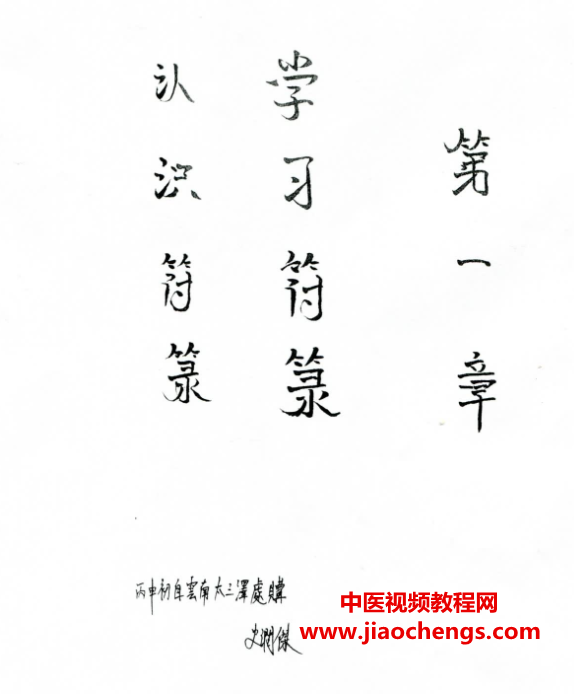 第一章
学习符箓
认识符箓
丙申初自雲南大三澤處購
史潤傑
中医视频教程网
www.jiaochengs.com